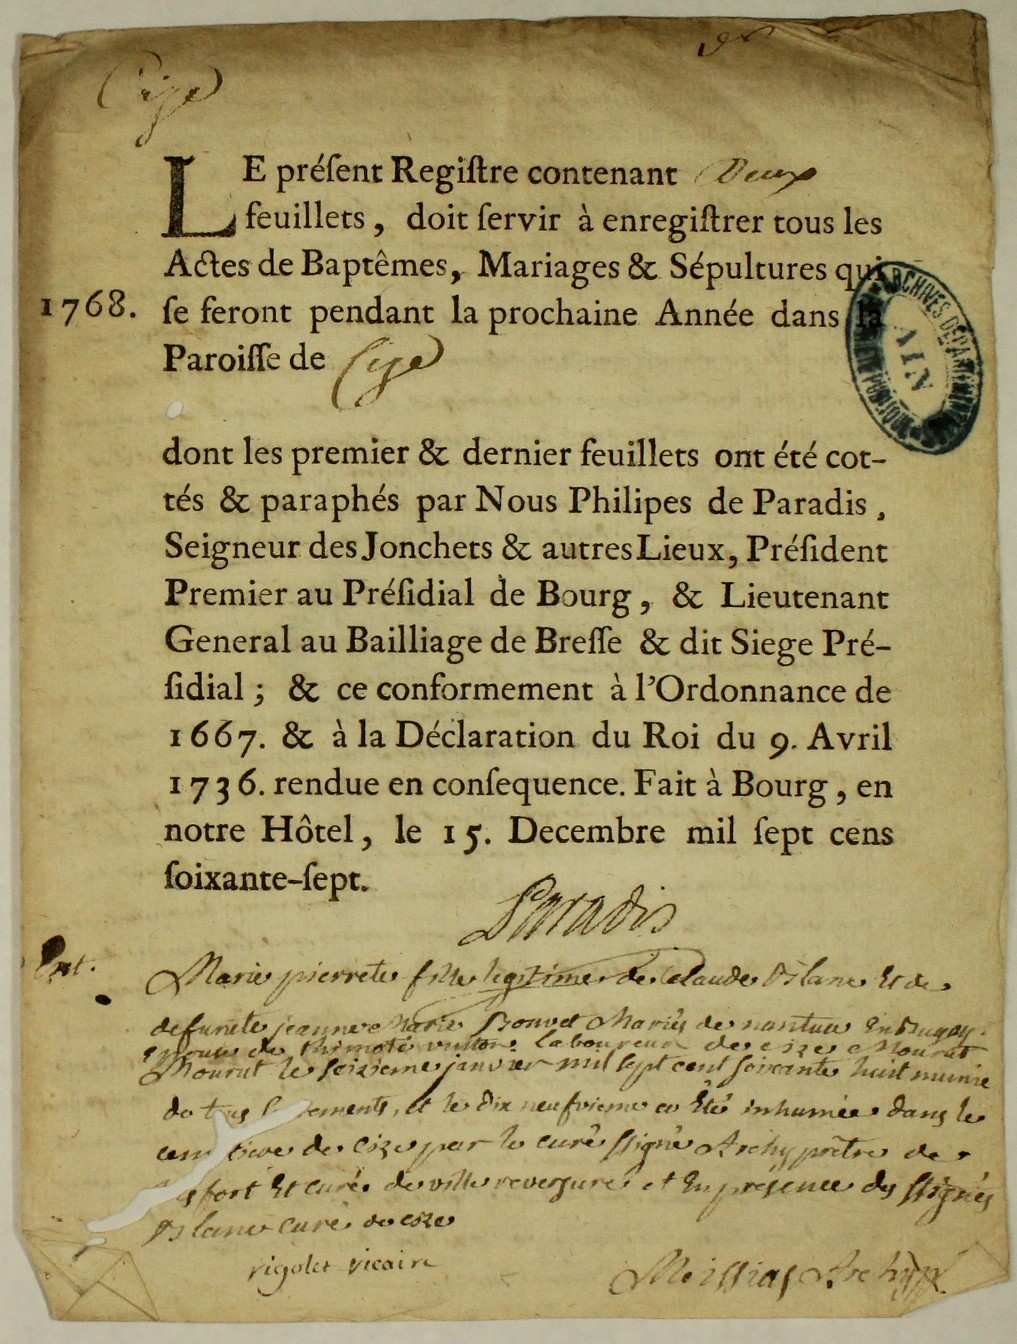 Cize
LE préſent Regiſtre contenant Deux
feuillets, doit ſervir à enregiſtrer tous les
Actes de Baptêmes, Mariages & Sépultures qui
1768. ſe feront pendant la prochaine Année dans la
Paroiſſe de Cize
ARCHIVES DÉPARTEMENTALES
AIN
dont les premier & dernier feuillets ont été cot-
tés & paraphés par Nous Philipes de Paradis,
Seigneur des Jonchets & autres Lieux, Préſident
Premier au Préſidial de Bourg, & Lieutenant
General au Bailliage de Breſſe & dit Siege Pré-
ſidial; & ce conformement à l'Ordonnance de
1667. & à la Déclaration du Roi du 9. Avril
1736. rendue en conſequence. Fait à Bourg, en
notre Hôtel, le 15. Decembre mil ſept cens
ſoixante-ſept.
Paradis
Ent.
Marie pierrete fille legitime de Claude Blanc Et de
defunte jeanne Marie Bonnet Mariés de nantua En Bugey
Epouse de thimoté laboureur de cize
Mourut le seizieme janvier mil sept cent soixante huit munie
de tous sacrements, et le dix neufvieme a Eté inhumée dans le
cemetiere de cize par le curé ssigné Archyprêtre de
fort Et curé de villereversure et En présence des ssignés
Blanc curé de cize
rigolet vicaire
Meissiaſ Archyp.